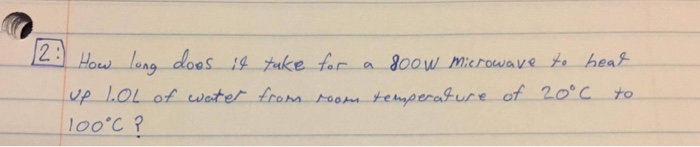 2: How long does it take for a 800W Microwave to heat
up 1.0L of water from room temperature of 20°C to
100°C?